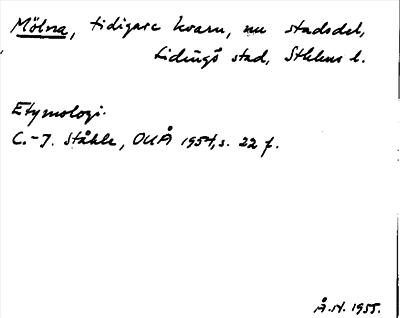 Mölna, tidigare kvarn, nu stadsdel,
Lidingö stad, Sthlms l.
Etymologi.
C.-J. Ståhle, OUÅ 1954, s. 22 f.
Å. St. 1955.